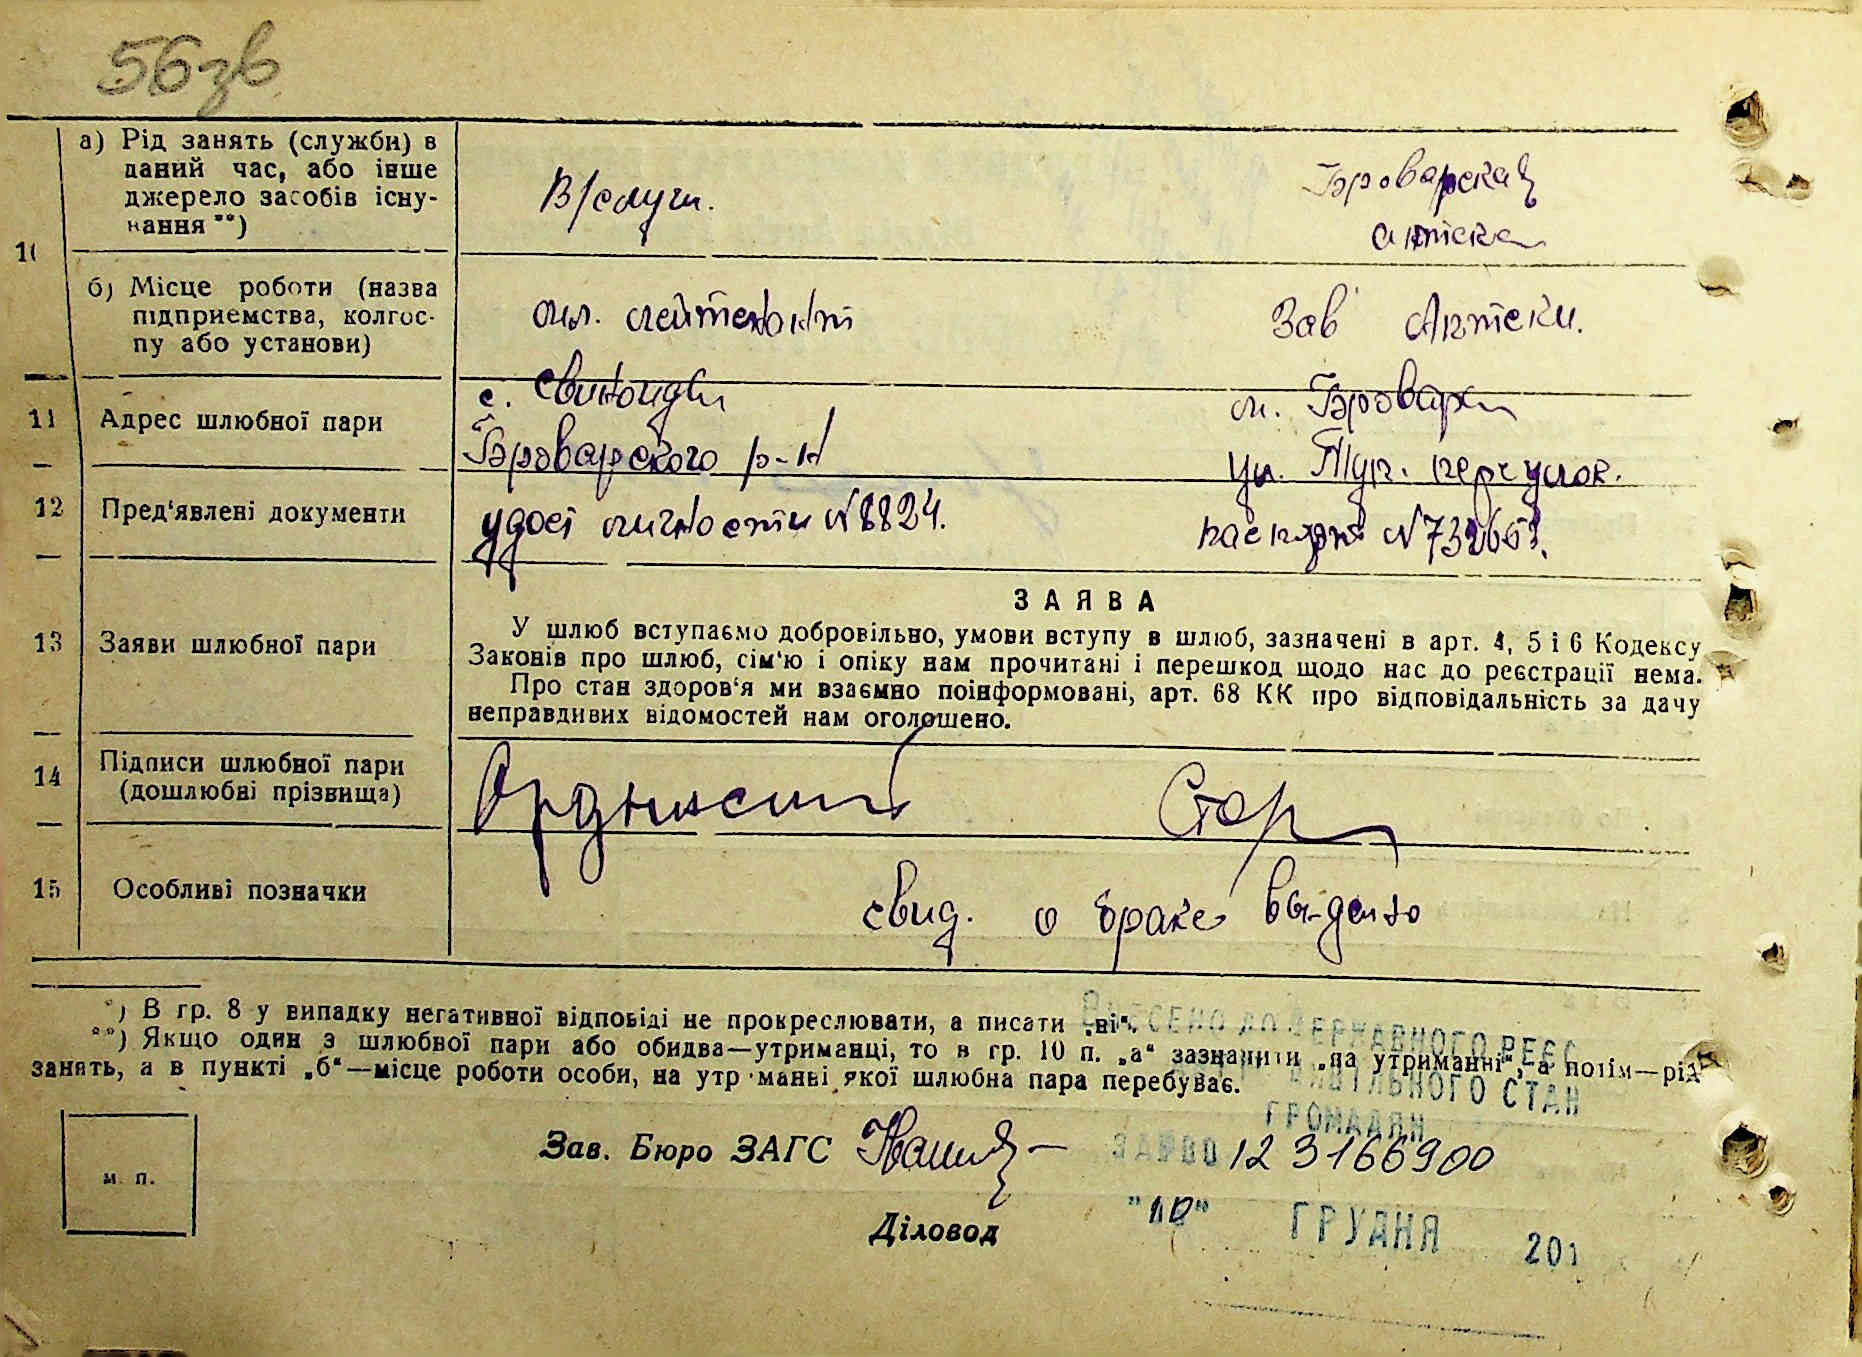 56зв
10
а) Рід занять (служби) в
даний час, або інше
джерело засобів існу-
вання **)
В/служ.
Броварская
аптека
б) Місце роботи (назва
підприємства, колгос-
пу або установи)
мл. лейтенант
Зав Аптеки.
11
Адрес шлюбної пари
с.
Броварского р-н
м. Бровары
ул. Туп. переулок.
12
Пред'явлені документи
удост личности №8824.
паспорт
13
Заяви шлюбної пари
ЗАЯВА
У шлюб вступаємо добровільно, умови вступу в шлюб, зазначені в арт. 4, 5 і 6 Кодексу
Законів про шлюб, сім'ю і опіку нам прочитані і перешкод щодо нас до реєстрації нема.
Про стан здоров'я ми взаємно поінформовані, арт. 68 КК про відповідальність за дачу
неправдивих відомостей нам оголошено.
14
Підписи шлюбної пари
(дошлюбні прізвища)
15
Особливі позначки
свид. о браке выдано
*) В гр. 8 у випадку негативної відповіді не прокреслювати, а писати „ні“.
**) Якщо один з шлюбної пари або обидва—утриманці, то в гр. 10 п. „а“ зазначити „на утриманні“, а потім—рід
занять, а в пункті „б“—місце роботи особи, на утриманні якої шлюбна пара перебуває.
ВНЕСЕНО ДО ДЕРЖАВНОГО РЕЄС
ЦИВІЛЬНОГО СТАН
ГРОМАДЯН
Зав. Бюро ЗАГС
ЗА №00 123166900
м. п.
Діловод
"10" ГРУДНЯ 201